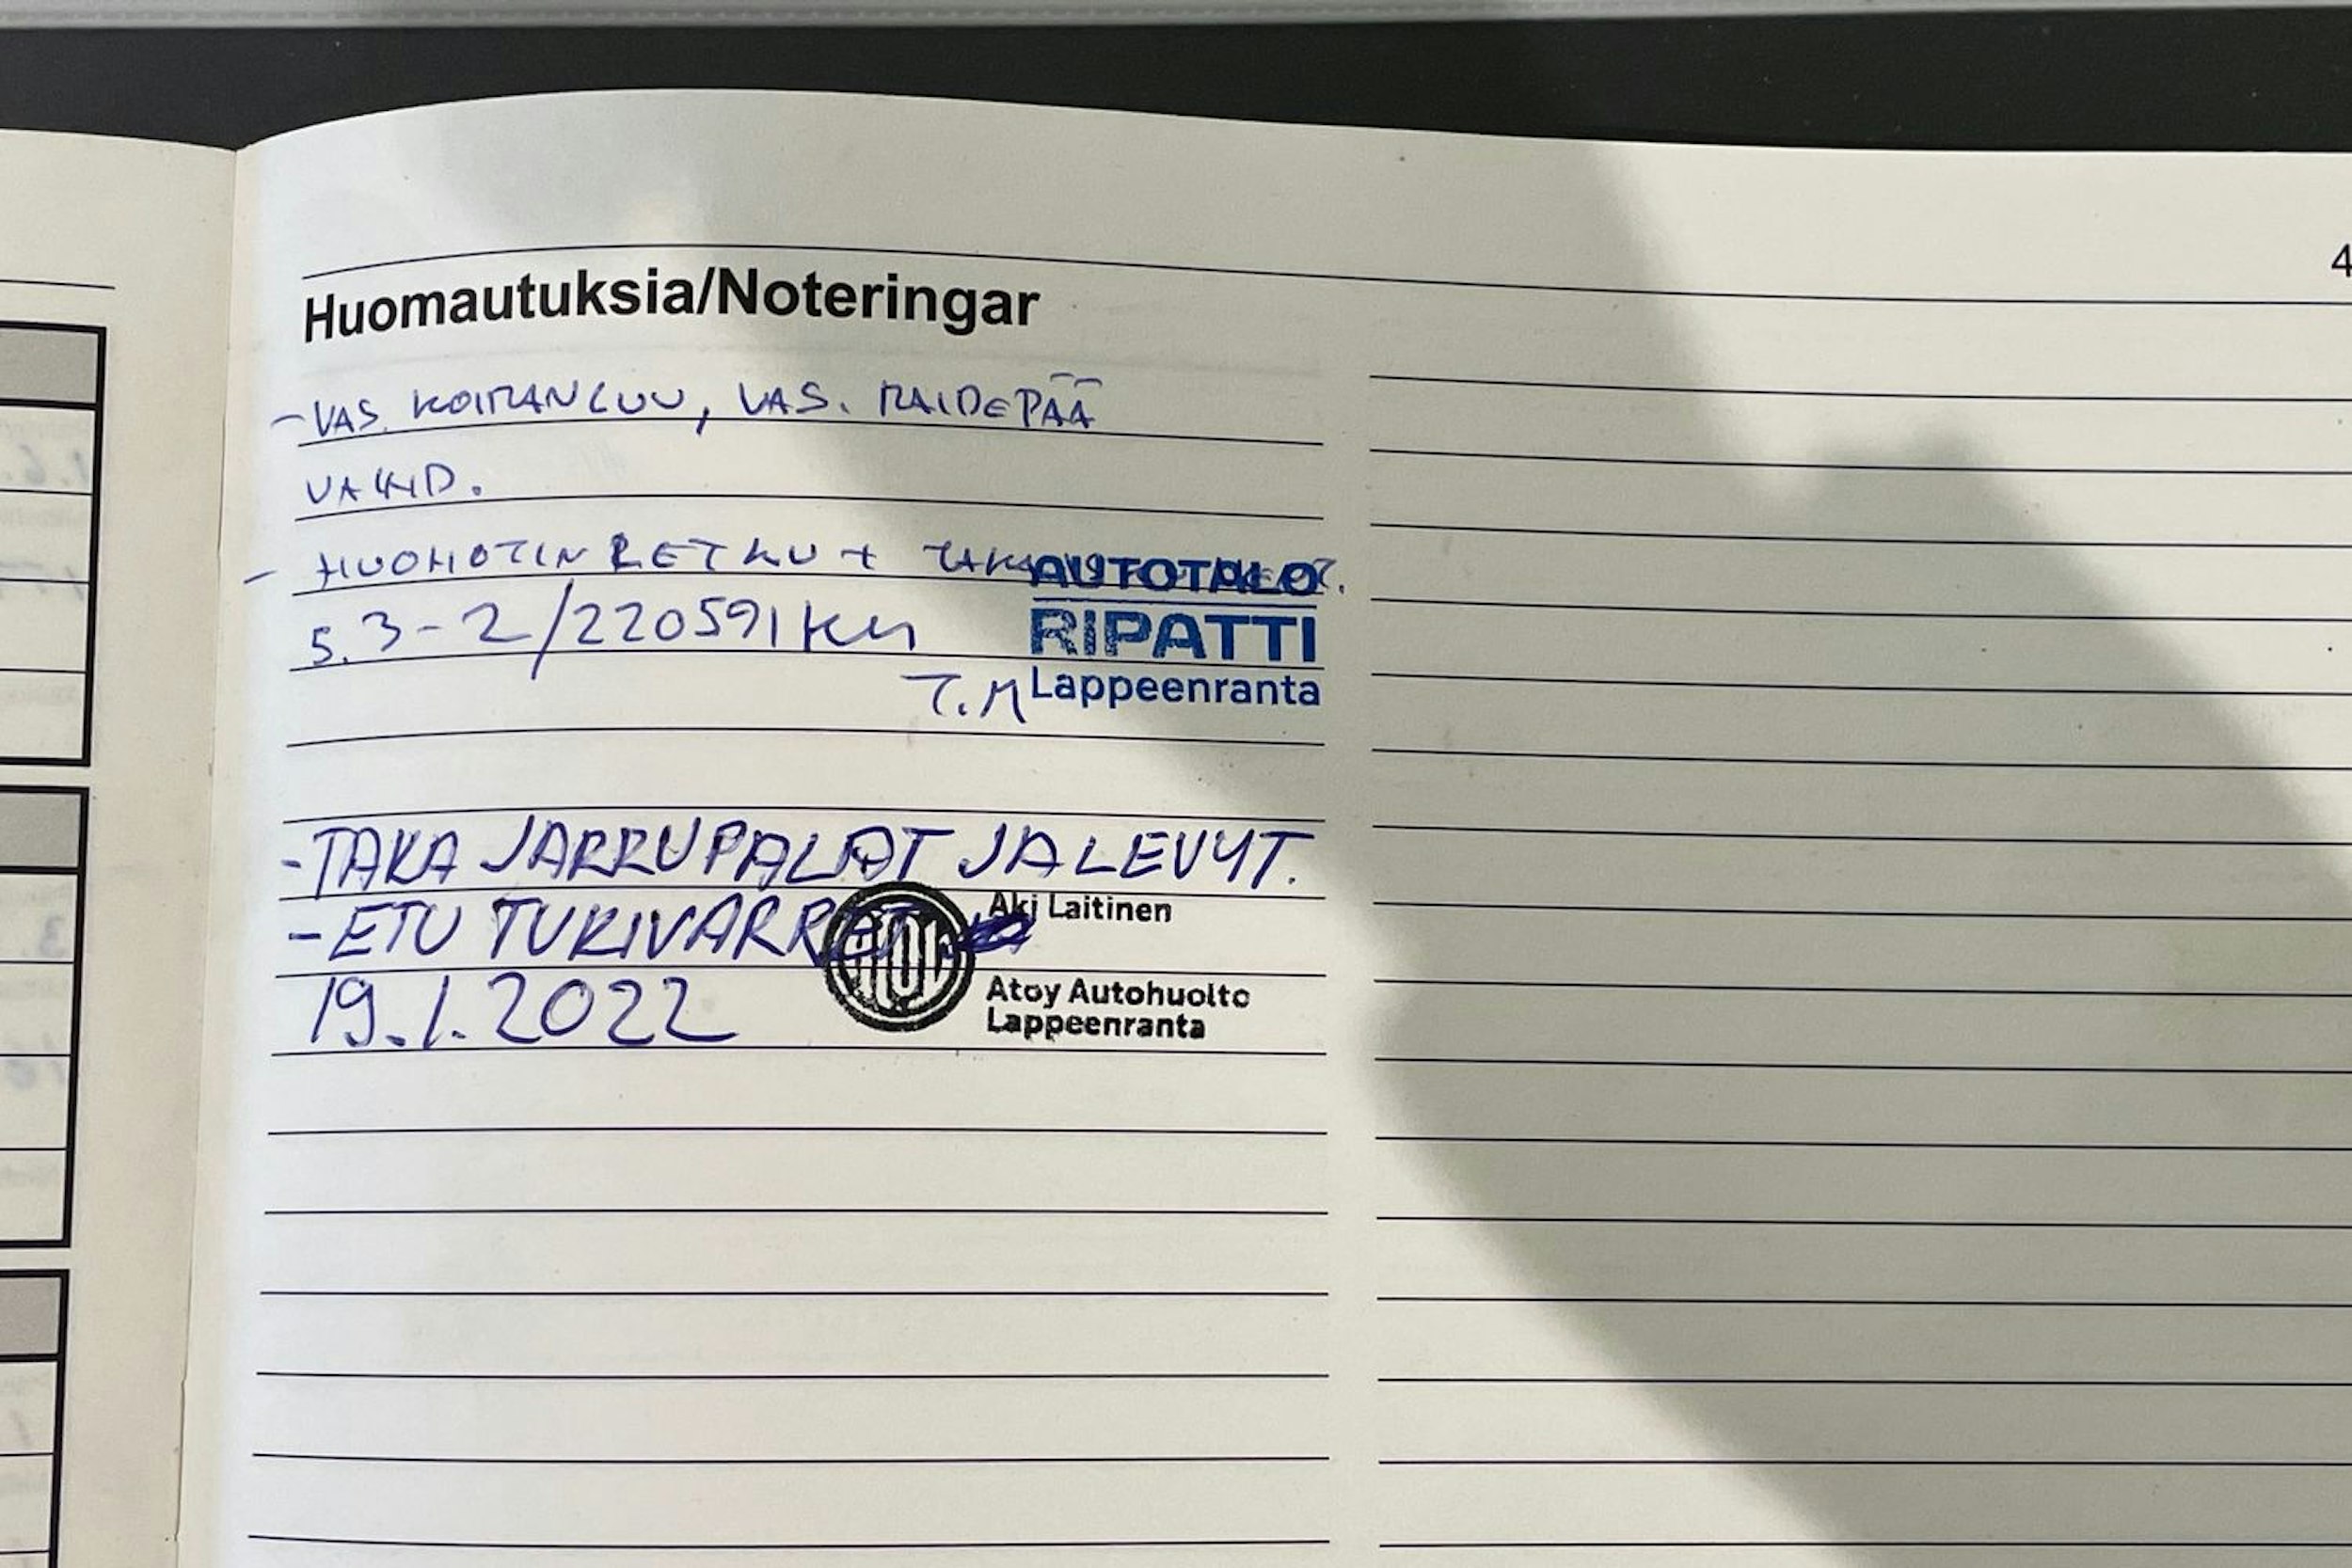 4
Huomautuksia/Noteringar
- VAS. KOIRANLUU, VAS. RAIDEPÄÄ
VAIHD.
- HUOHOTIN LETKU +
AUTOTALO
5.3-2/220591 KM
RIPATTI
T.M
Lappeenranta
- TAKA JARRUPALAT JA LEVYT.
- ETU TUKIVARRET
Aki Laitinen
19.1.2022
Atoy Autohuolto
Lappeenranta